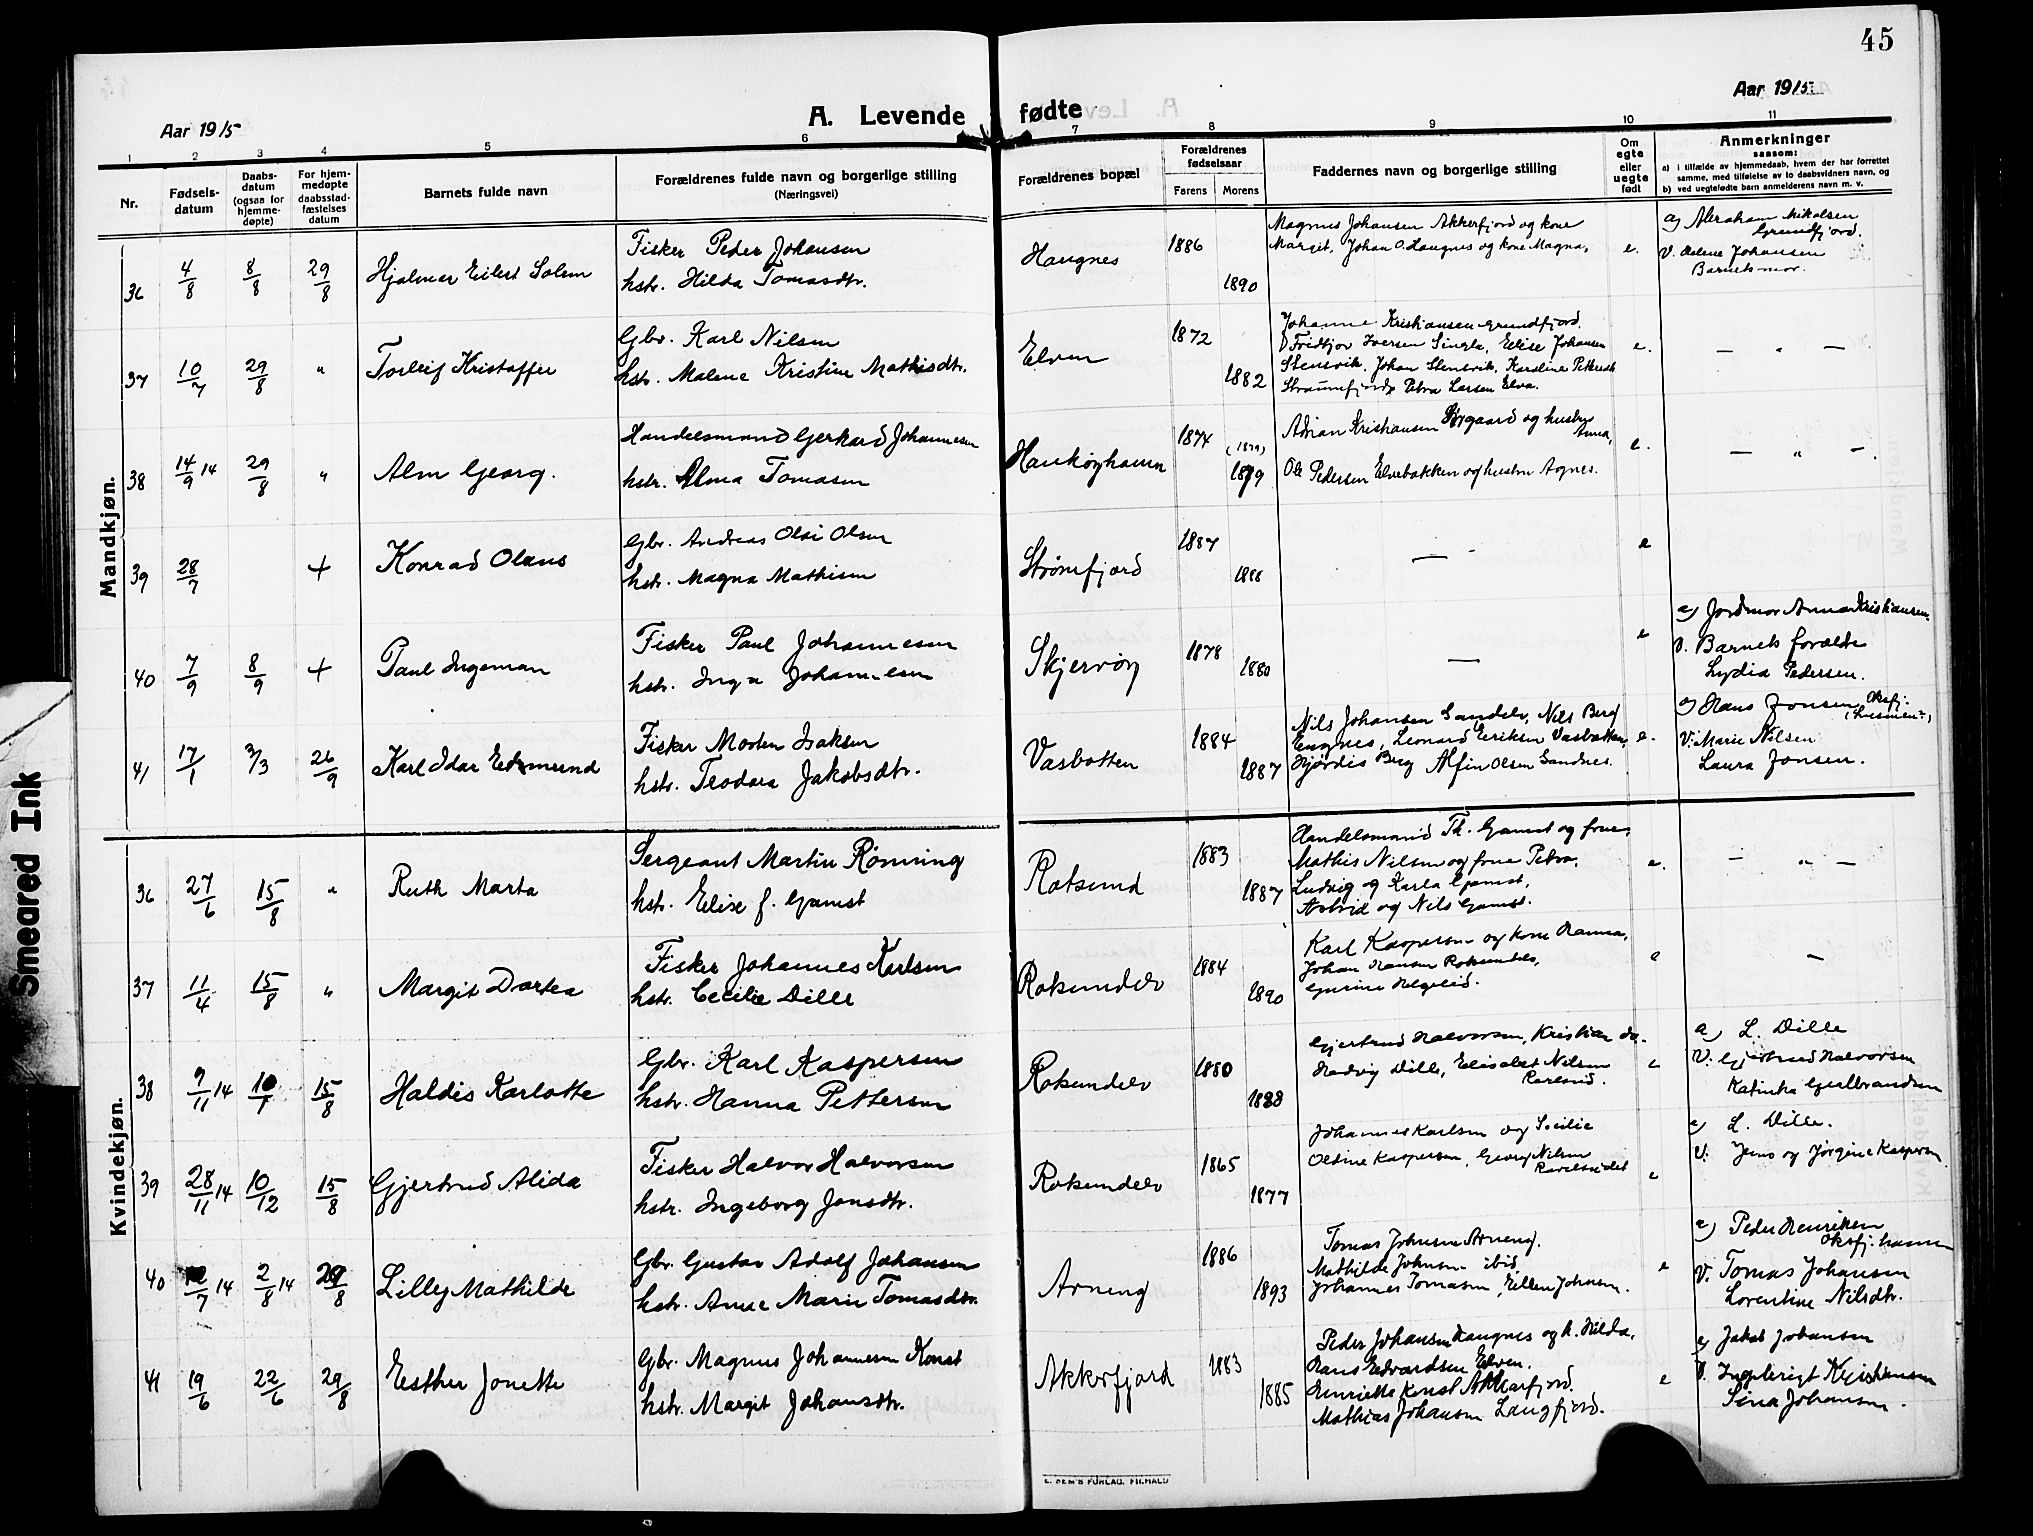 45
Aar 1915
A. Levende fødte
Aar 1915
1 2 3 4 5 6 7 8 9 10 11
Nr.
Fødsels-
datum
Daabs-
datum
(ogsaa for
hjemme-
døpte)
For hjem-
medøpte
daabsstad-
fæstelses
datum
Barnets fulde navn
Forældrenes fulde navn og borgerlige stilling
(Næringsvei)
Forældrenes bopæl
Forældrenes
fødselsaar
Farens Morens
Faddernes navn og borgerlige stilling
Om
egte
eller
uegte
født
Anmerkninger
saasom:
a) i tilfælde av hjemmedaab, hvem der har forrettet
samme, med tilføielse av to daabsvidners navn, og
b) ved uegtefødte barn anmelderens navn m. v.
Mandkjøn.
36 4/8 8/8 29/8 Hjalmar Eilert Solem
Fisker Peder Johansen
hstr. Hilda Tomasdtr.
Haugnes 1886 1890
Magnus Johansen Akkerfjord og kone
Margit, Johan O. Haugnes og kone Magna,
e.
a) Abraham Mikalsen
Grundfjord.
V. Helene Johansen
Barnets mor.
37 10/7 29/8 " Torleif Kristoffer
Gbr. Karl Nilsen
hstr. Malene Kristine Mathisdtr.
Elven 1872 1882
Johanne Kristiansen Grundfjord.
Fridtjov Iversen Singla, Elise Johansen
Stensvik. Johan Stensvik, Karoline
Straumfjord, Petra Larsen Elva.
e. — " —
38 14/9 14 29/8 " Alm Georg.
Handelsmand Gerhard Johannesen
hstr. Alma Tomasen
Haukøyhamn 1874 (1879) 1879
Adrian Kristiansen Sørgaard og hustru
Anna,
Ole Pedersen Elvebakken og hustru Agnes.
e. — " —
39 28/7 + Konrad Olaus
Gbr. Andreas Olai Olsen
hstr. Magna Mathisen
Strømfjord 1887 1886
— e
40 7/9 8/9 + Paul Ingeman
Fisker Paul Johannesen
hstr. Inga Johannesen
Skjervøy 1878 1880
— e
a) Jordmor Anna Kristiansen.
V. Barnets forældre
Lydia Pedersen.
41 17/1 3/3 26/9 Karl Idar Edmund
Fisker Morten Isaksen
hstr. Teodora Jakobsdtr.
Vasbotten 1884 1887
Nils Johansen Sandelv, Nils Berg
Engnes, Leonard Eriksen Vasbotten,
Hjørdis Berg Alfin Olsen Sandnes.
e.
a) Hans Jonsen, Oksfj.
V: Marie Nilsen
Laura Jonsen.
Kvindekjøn.
36 27/6 15/8 " Ruth Marta
Sergeant Martin Rønning
hstr. Elise f. Gamst
Rotsund 1883 1887
Handelsmand Th. Gamst og frue,
Mathis Nilsen og frue Petra,
Ludvig og Karla Gamst,
Astrid og Nils Gamst.
e. — " —
37 11/4 15/8 " Margit Dortea
Fisker Johannes Karlsen
hstr. Cecilie Dille
Rotsundelv 1884 1890
Karl Kaspersen og kone Hanna,
Johan Hansen Rotsundelv,
Gurine Hegelid.
e —
38 9/11 14 10/1 15/8 Haldis Karlotte
Gbr. Karl Kaspersen
hstr. Hanna Pettersen
Rotsundelv 1880 1888
Gjertrud Halvorsen, Kristian do.
Hedvig Dille, Elisabet Nilsen
e
a) L. Dille
V: Gjertrud Halvorsen
Katinka Gulbrandsen
39 28/11 14 10/12 15/8 Gjertrud Alida
Fisker Halvor Halvorsen
hstr. Ingeborg Jonsdtr.
Rotsundelv 1865 1877
Johannes Karlsen og Secilie
Oldine Kaspersen, Georg Nilsen
e
a) L. Dille.
V: Jens og Jørgine Kaspersen
40 12/7 14 2/8 14 29/8 Lilly Mathilde
Gbr. Gustav Adolf Johansen
hstr. Anne Marie Tomasdtr.
Arneng 1886 1893
Tomas Johnsen Arneng.
Mathilde Johnsen ibid.
Johannes Tomasen, Ellen Johnsen.
e
a) Peder Henriksen
Oksfj. hamn
V. Tomas Johansen
Lorentine Nilsdtr.
41 19/6 22/6 29/8 Esther Jonette
Gbr. Magnus Johannesen Konst
hstr. Margit Johansdtr.
Akkerfjord 1883 1885
Peder Johansen Haugnes og k. Hilda,
Hans Edvardsen Elven.
Henriette Konst Akkarfjord.
Mathias Johansen Langfjord.
e
a) Jakob Johansen
V. Ingebrigt Kristiansen
Sina Johansen.
Smeared Ink